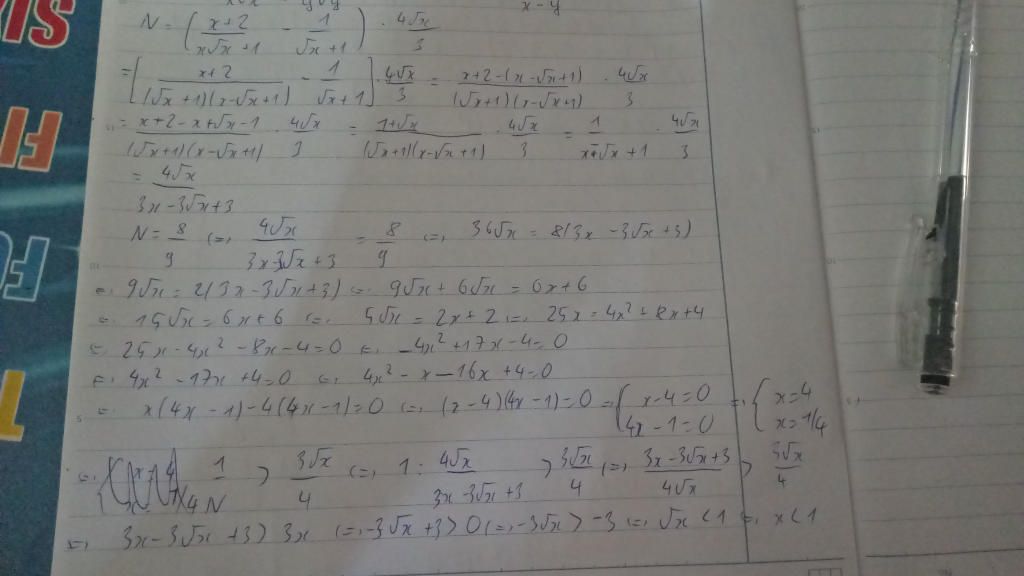 x - y
N = ( x+2 / x√x + 1 - 1 / √x + 1 ) · 4√x / 3
= [ x+2 / (√x + 1)(x - √x + 1) - 1 / √x + 1 ] · 4√x / 3 = x+2-(x-√x+1) / (√x+1)(x-√x+1) · 4√x / 3
= x+2-x+√x-1 / (√x+1)(x-√x+1) · 4√x / 3 = 1+√x / (√x+1)(x-√x+1) · 4√x / 3 = 1 / x-√x+1 · 4√x / 3
= 4√x / 3x-3√x+3
N = 8/9 (=, 4√x / 3x-3√x+3 = 8/9 (=, 36√x = 8(3x-3√x+3)
=, 9√x = 2(3x-3√x+3) (=, 9√x + 6√x = 6x+6
=, 15√x = 6x+6 (=, 5√x = 2x+2 (=, 25x = 4x² + 8x+4
=, 25x-4x²-8x-4=0 (=, -4x²+17x-4=0
=, 4x²-17x+4=0 (=, 4x²-x-16x+4=0
=, x(4x-1)-4(4x-1)=0 (=, (x-4)(4x-1)=0 =, { x-4=0 4x-1=0 =, { x=4 x=1/4
=, 1/N > 3√x/4 (=, 1 : 4√x / 3x-3√x+3 > 3√x/4 (=, 3x-3√x+3 / 4√x > 3√x/4
=, 3x-3√x+3 > 3x (=, -3√x+3>0 (=, -3√x > -3 (=, √x < 1 =, x<1
SI
FI
FO
T